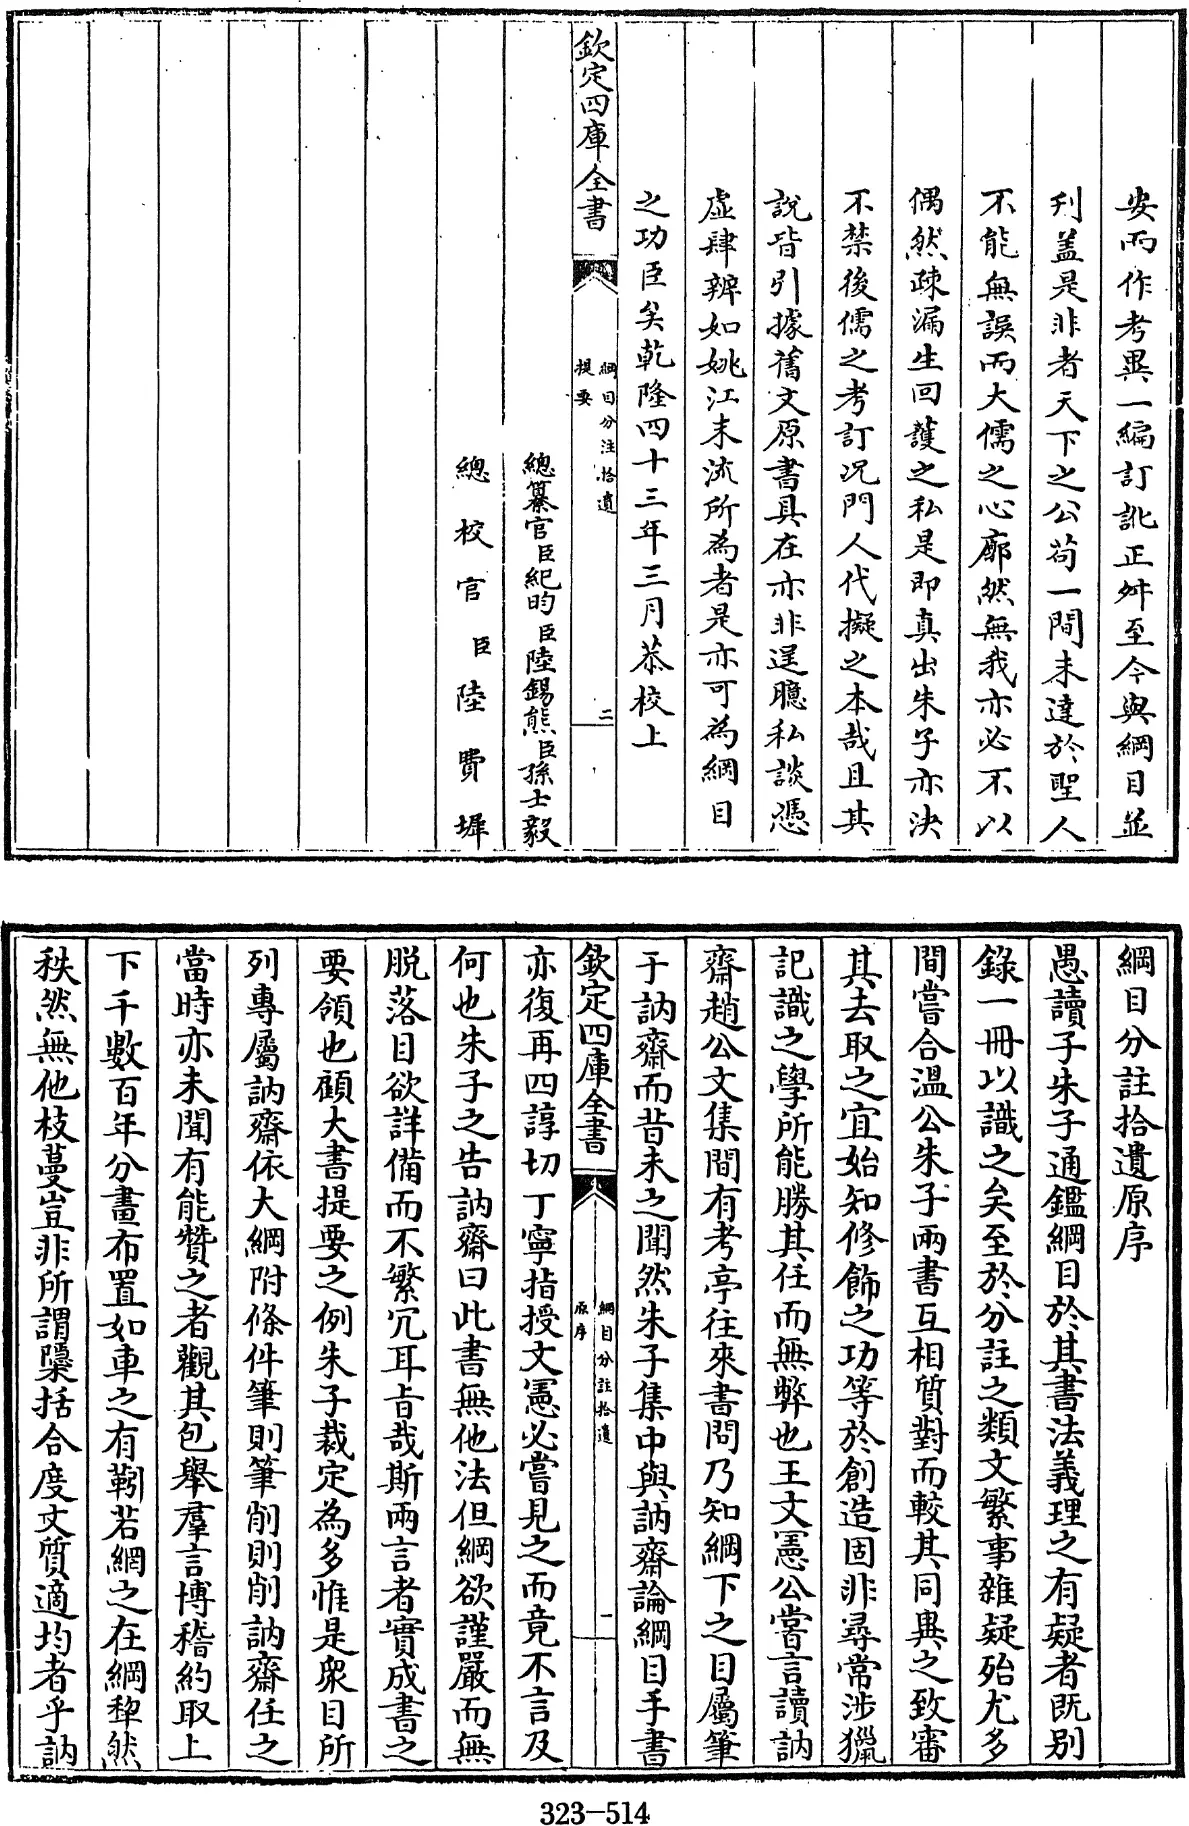 安而作考異一編訂訛正舛至今與綱目並
刋蓋是非者天下之公茍一間未達於聖人
不能無誤而大儒之心廓然無我亦必不以
偶然疎漏生回護之私是即真出朱子亦決
不禁後儒之考訂况門人代擬之本哉且其
說皆引據舊文原書具在亦非逞臆私談憑
虛肆辨如姚江末流所為者是亦可為綱目
之功臣矣乾隆四十三年三月恭校上
欽定四庫全書
綱目分注拾遺
提要
二
總纂官臣紀昀臣陸錫熊臣孫士毅
總校官臣陸費墀
綱目分註拾遺原序
愚讀子朱子通鑑綱目於其書法義理之有疑者既别
錄一冊以識之矣至於分註之類文繁事雜疑殆尤多
間嘗合溫公朱子兩書互相質對而較其同異之致審
其去取之宜始知修飾之功等於創造固非尋常涉獵
記識之學所能勝其任而無弊也王文憲公嘗言讀訥
齋趙公文集間有考亭往來書問乃知綱下之目屬筆
于訥齋而昔未之聞然朱子集中與訥齋論綱目手書
欽定四庫全書
綱目分註拾遺
原序
一
亦復再四諄切丁寧指授文憲必嘗見之而竟不言及
何也朱子之告訥齋曰此書無他法但綱欲謹嚴而無
脱落目欲詳備而不繁冗耳旨哉斯兩言者實成書之
要領也顧大書提要之例朱子裁定為多惟是衆目所
列專屬訥齋依大綱附條件筆則筆削則削訥齋任之
當時亦未聞有能贊之者觀其包舉羣言博稽約取上
下千數百年分畫布置如車之有䩜若網之在綱犂然
秩然無他枝蔓豈非所謂檃括合度文質適均者乎訥
323-514